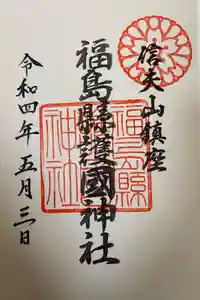 信夫山鎮座
福島縣護國神社
令和四年五月三日
福島縣
神社